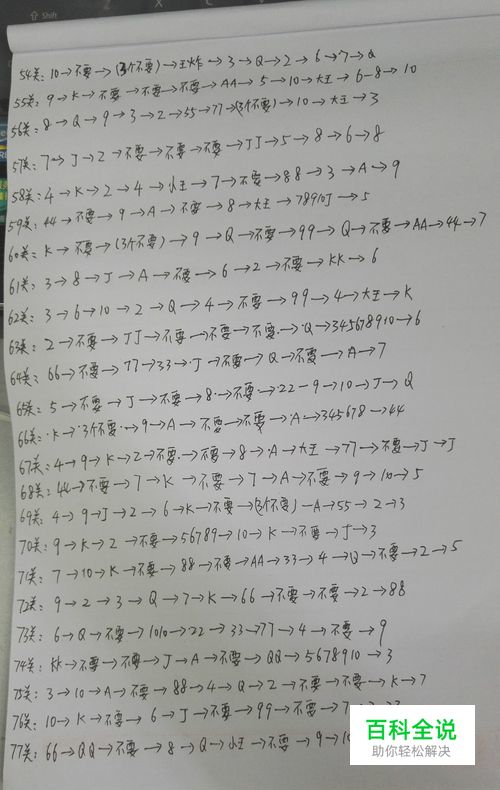 54关: 10→不要→(3个不要)→王炸→3→Q→2→6→7→Q
55关: 9→K→不要→不要→不要→AA→5→10→大王→6→8→10
56关: 8→Q→9→3→2→55→77→(3个不要)→10→大王→3
57关: 7→J→2→不要→不要→不要→JJ→5→8→6→8
58关: 4→K→2→4→小王→7→不要→88→3→A→9
59关: 44→不要→9→A→不要→8→大王→78910J→5
60关: K→不要→(3个不要)→9→Q→不要→99→Q→不要→AA→44→7
61关: 3→8→J→A→不要→6→2→不要→KK→6
62关: 3→6→10→2→Q→4→不要→99→4→大王→K
63关: 2→不要→JJ→不要→不要→不要→Q→345678910→6
64关: 66→不要→77→33→J→不要→Q→不要→A→7
65关: 5→不要→J→不要→8→不要→22→9→10→J→Q
66关: K→3个不要→9→A→不要→不要→A→345678→44
67关: 4→9→K→2→不要→不要→8→A→大王→77→不要→J→J
68关: 44→不要→7→K→不要→7→A→不要→9→10→5
69关: 4→9→J→2→6→K→不要→(3个不要)→A→55→2→3
70关: 9→K→2→不要→56789→10→K→不要→J→3
71关: 7→10→K→不要→88→不要→AA→33→4→Q→不要→2→5
72关: 9→2→3→Q→7→K→66→不要→不要→2→88
73关: 6→Q→不要→1010→22→33→77→4→不要→9
74关: KK→不要→不要→J→A→不要→QQ→5678910→3
75关: 3→10→A→不要→88→4→Q→2→不要→不要→K→7
76关: 10→K→不要→6→J→不要→99→不要→7
77关: 66→QQ→不要→8→Q→小王→不要→9
百科全说
助你轻松解决